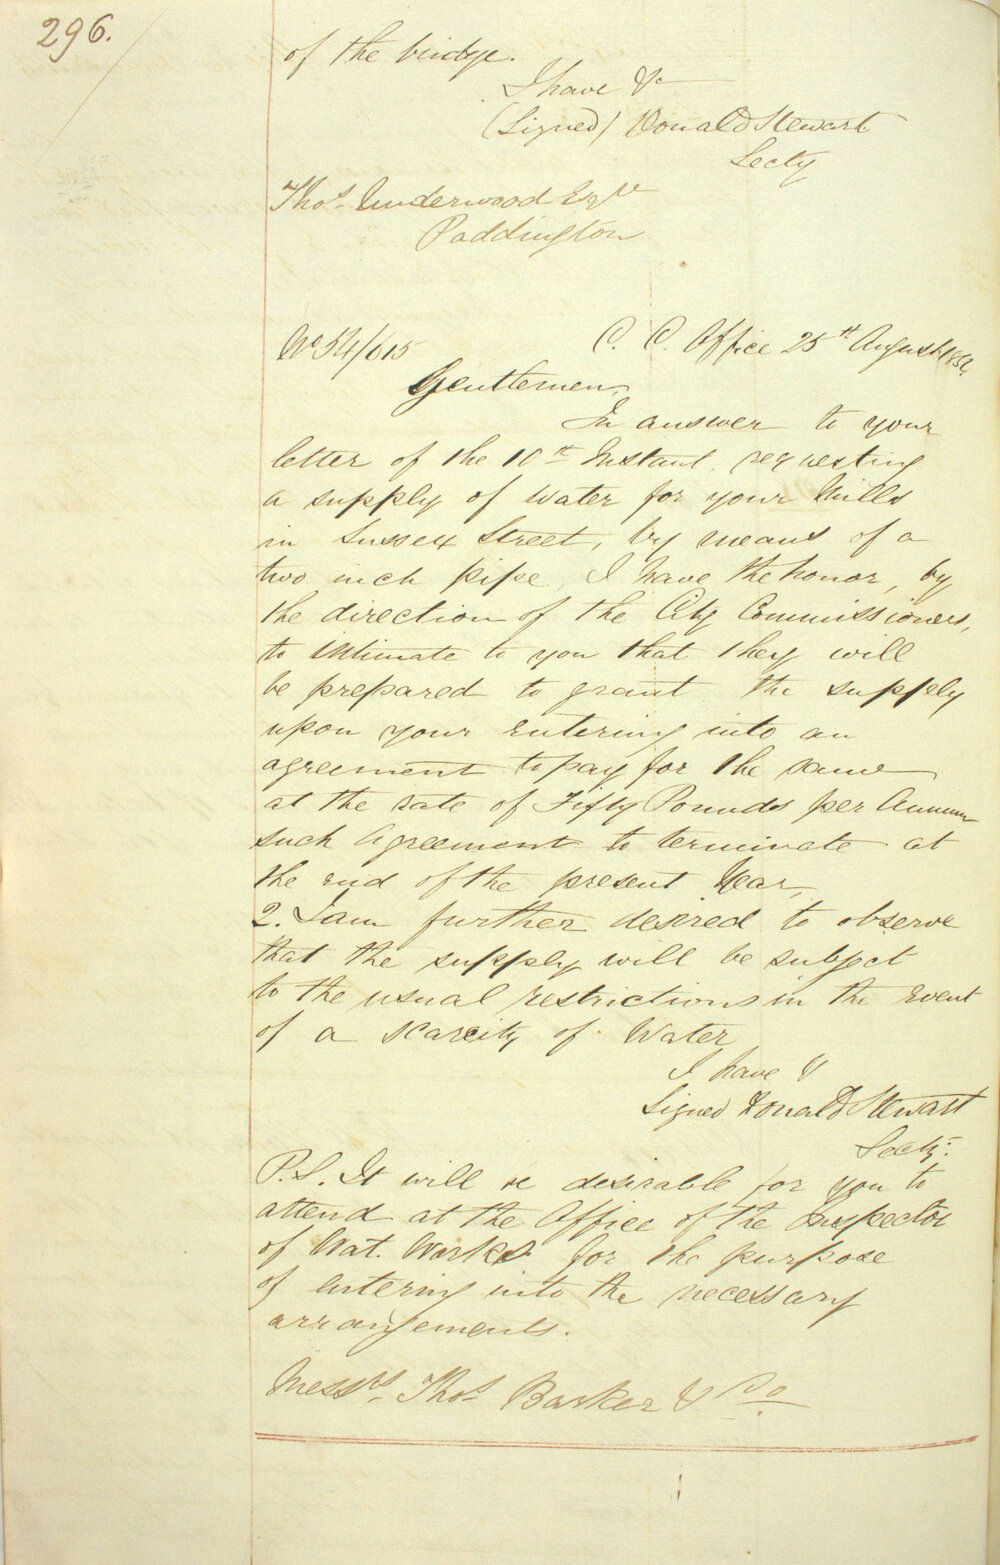 296.
of the bridge.
I have &c
(Signed) Donald Stewart
Secty
Thos. Underwood Esqre
Paddington
No 54/615
C. C. Office 25th August 1854
Gentlemen,
In answer to your
letter of the 10th Instant, requesting
a supply of water for your Mills
in Sussex Street, by means of a
two inch pipe, I have the honor, by
the direction of the City Commissioners,
to intimate to you that they will
be prepared to grant the supply
upon your entering into an
agreement to pay for the same
at the rate of Fifty Pounds per Annum
such Agreement to terminate at
the end of the present Year,
2. I am further desired to observe
that the supply will be subject
to the usual restrictions in the event
of a scarcity of Water
I have &
Signed Donald Stewart
Secty.
P.S. It will be desirable for you to
attend at the Office of the Inspector
of Wat. Works for the purpose
of entering into the necessary
arrangements.
Messrs. Thos. Barker & Co